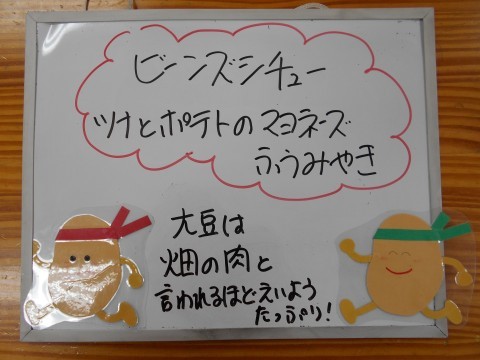 ビーンズシチュー
ツナとポテトのマヨネーズ
ふうみやき
大豆は
畑の肉と
言われるほどえいよう
たっぷり!